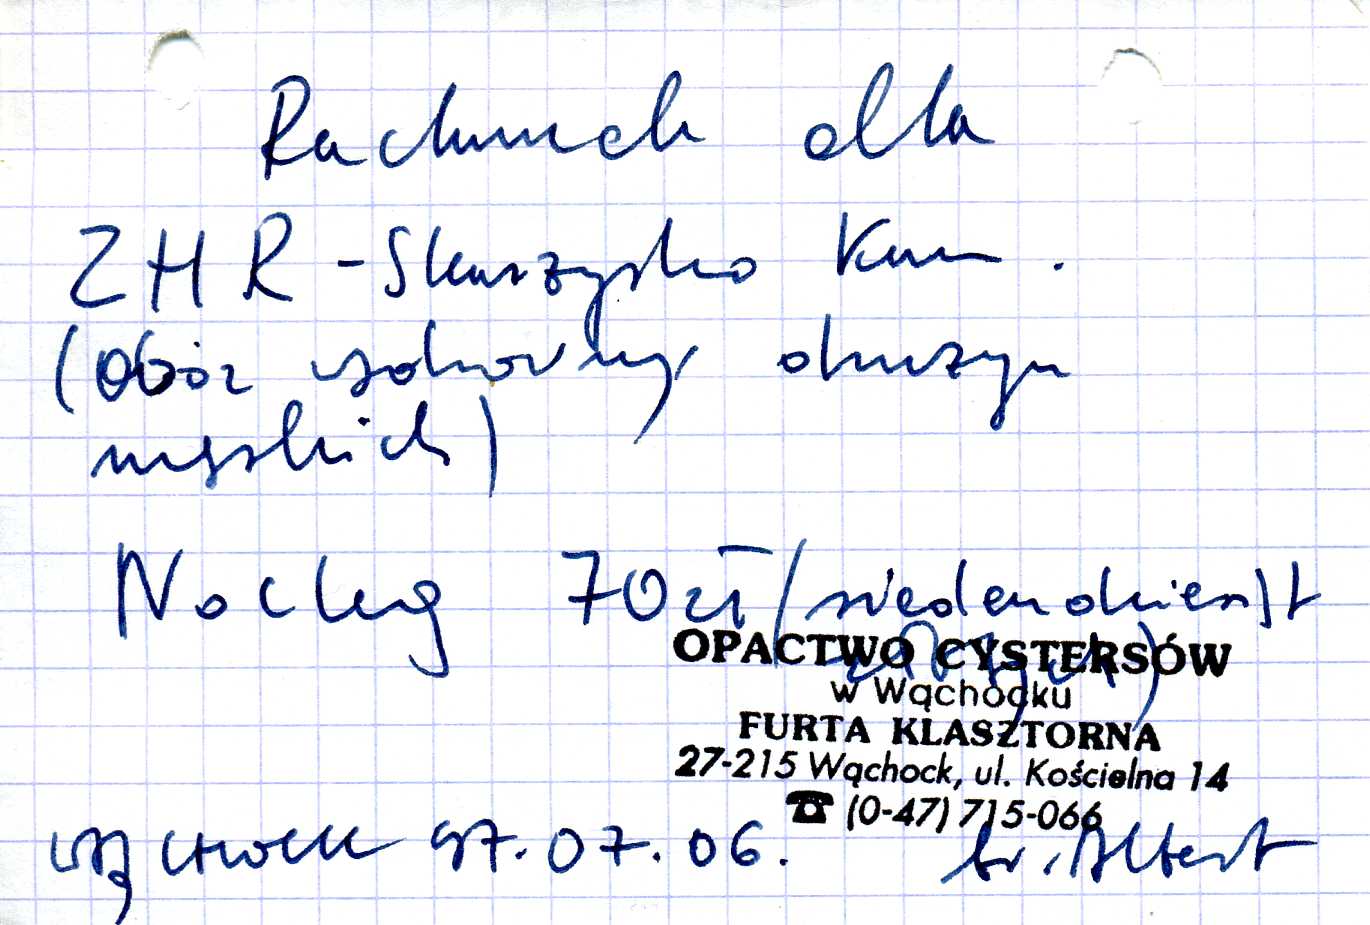 Rachunek dla
ZHR - Skarżysko Kam.
(obóz wędrowny drużyn
męskich)
Nocleg 70 zł (siedemdziesiąt
złotych)
OPACTWO CYSTERSÓW
w Wąchocku
FURTA KLASZTORNA
27-215 Wąchock, ul. Kościelna 14
☎ (0-47) 715-066
Wąchock 97.07.06. br. Albert